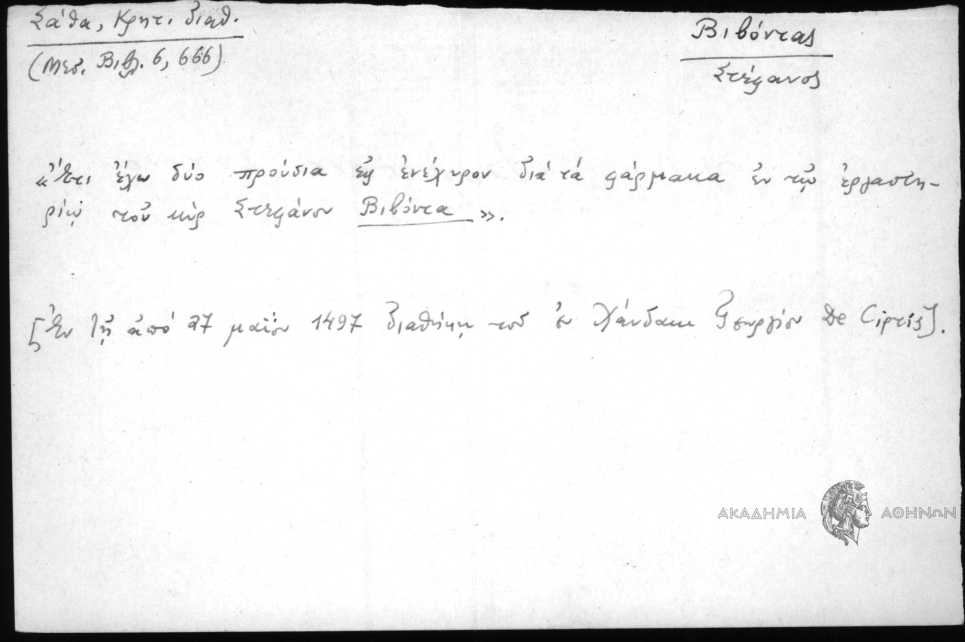 Σάθα, Κρητ. διαθ.
(Μεσ. Βιβλ. 6, 666)
Βιβόντας
Στέφανος
«Ἔτι ἔχω δύο προύσια εἰς ἐνέχυρον διὰ τά φάρμακα ἐν τῷ ἐργαστη-
ρίῳ τοῦ κὺρ Στεφάνου Βιβόντα».
[Ἐν τῇ ἀπό 27 μαΐου 1497 διαθήκῃ τοῦ ἐν Χάνδακι Γεωργίου De
ΑΚΑΔΗΜΙΑ ΑΘΗΝΩΝ